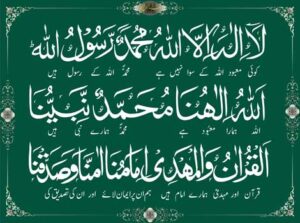 لا إله إلا الله محمد رسول الله
کوئی معبود اللہ کے سوا نہیں ہے محمدؐ اللہ کے رسول ہیں
الله الهنا محمد نبينا
اللہ ہمارا معبود ہے محمدؐ ہمارے نبی ہیں
القرآن والمهدي امامنا امنا وصدقنا
قرآن اور مہدیؑ ہمارے امام ہیں ہم ان پر ایمان لائے اور ان کی تصدیق کی